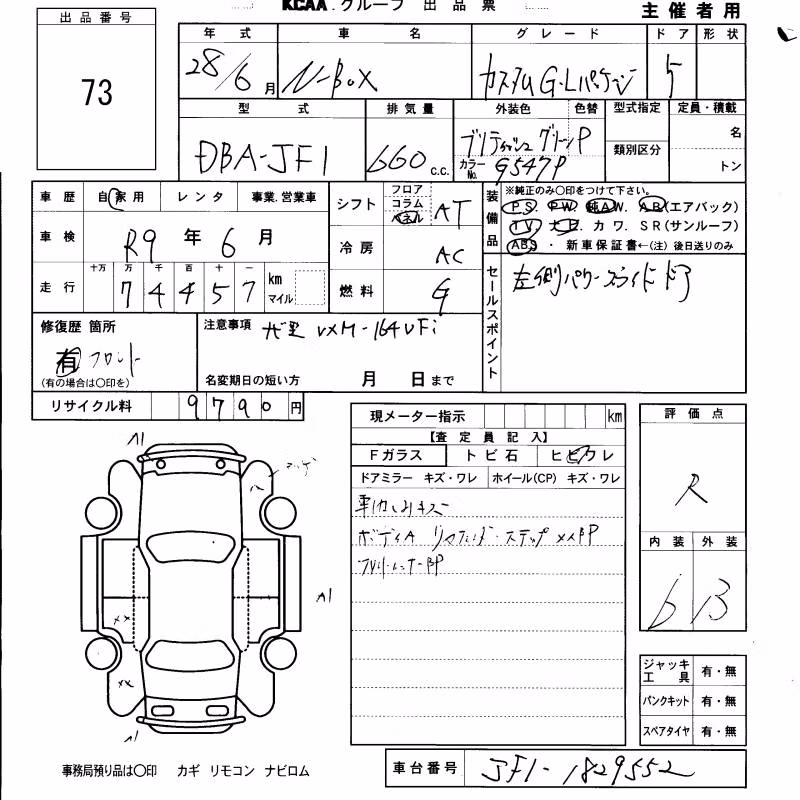 KCAA.グループ 出品票
主催者用
出品番号
73
年式 車名 グレード ドア 形状
28/6月 N-BOX カスタムG・Lパケージ 5
型式 排気量 外装色 色替 型式指定 定員・積載
DBA-JF1 660 c.c. ブリティッシュグリーンP 名
カラーNo. G547P 類別区分 トン
車歴 自家用 レンタ 事業.営業車
シフト フロア コラム パネル AT
装備品 ※純正のみ○印をつけて下さい。
PS. PW. 純AW. AB(エアバック)
TV. ナビ. カワ. SR(サンルーフ)
ABS ・ 新車保証書←(注)後日送りのみ
車検 R9年6月
冷房 AC
走行 十万 万 千 百 十 一 km マイル
74457
燃料 G
セールスポイント 左側パワースライドドア
修復歴 箇所
有 フロント
(有の場合は○印を)
注意事項 ナビ VXM-164VFi
名変期日の短い方 月 日まで
リサイクル料 9790円
現メーター指示 km
【査定員記入】
Fガラス トビ石 ヒビワレ
ドアミラー キズ・ワレ ホイール(CP) キズ・ワレ
ボディA
評価点
R
内装 外装
b B
A1
A1
××
××
A1
ジャッキ工具 有・無
パンクキット 有・無
スペアタイヤ 有・無
事務局預り品は○印 カギ リモコン ナビロム
車台番号 JF1-1829552